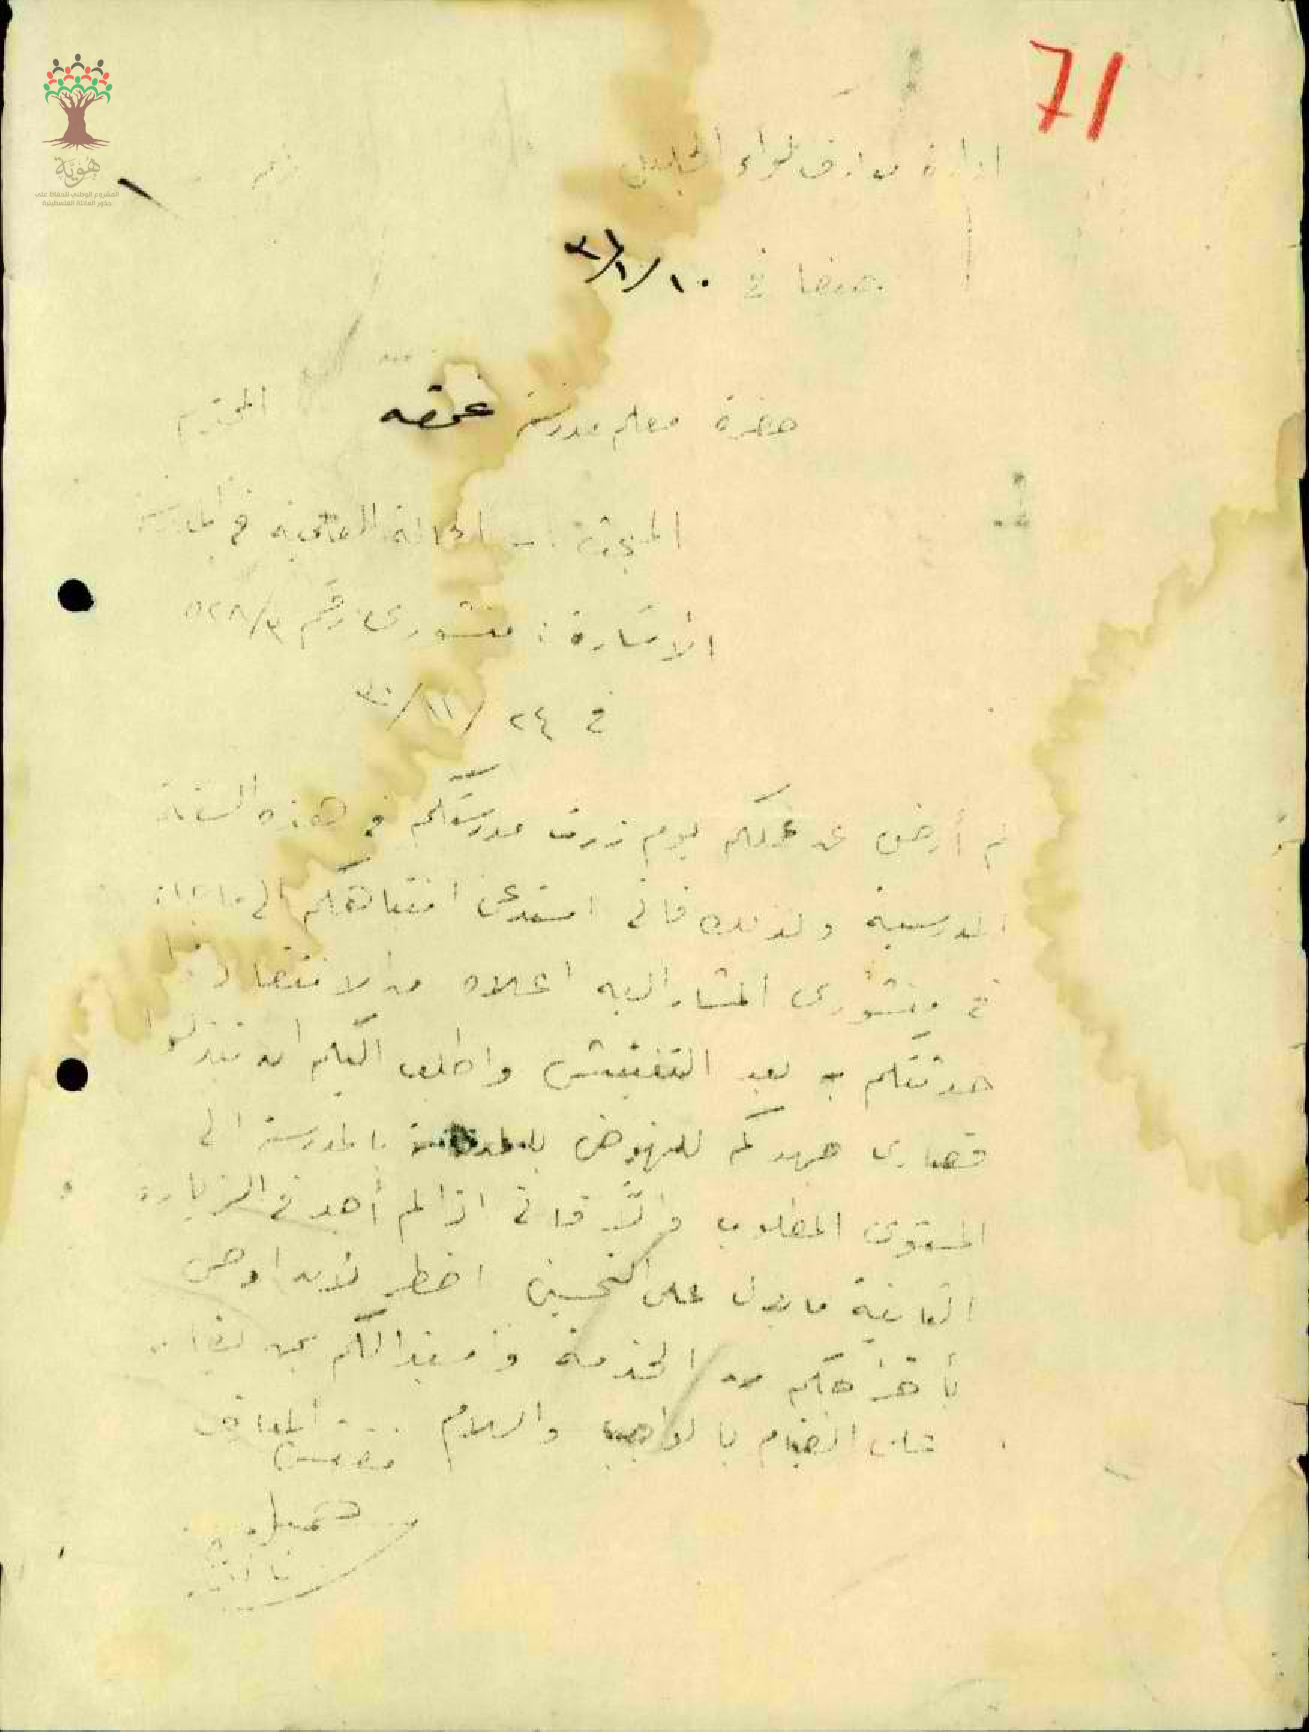 71
هُوِيَّة
المشروع الوطني للحفاظ على
جذور العائلة الفلسطينية
ادارة معارف لواء الجليل
حيفا في ١٠/١/٣١
حضرة معلم مدرسة عمقه المحترم
المبحث: الحالة العلمية في المدرسة
الاشارة: منشوري رقم ٥٢٨/٣
في ٢٤/١١/٣٠
لم أرض عن عملكم يوم زرت مدرستكم في هذه السنة
المدرسية ولذلك فاني استدعي انتباهكم الى ما جاء
في منشوري المشار اليه اعلاه
حدثتكم به بعد التفتيش واطلب اليكم ان تبذلوا
قصارى جهدكم للنهوض بالمدرسة الى
المستوى المطلوب والّا فاني اذا لم أجد في الزيارة
الثانية ما يدل على التحسين اضطر لأن اوصي
بأخراجكم من الخدمة واستبدالكم بمن
القيام بالواجب والسلام
مفتش المعارف